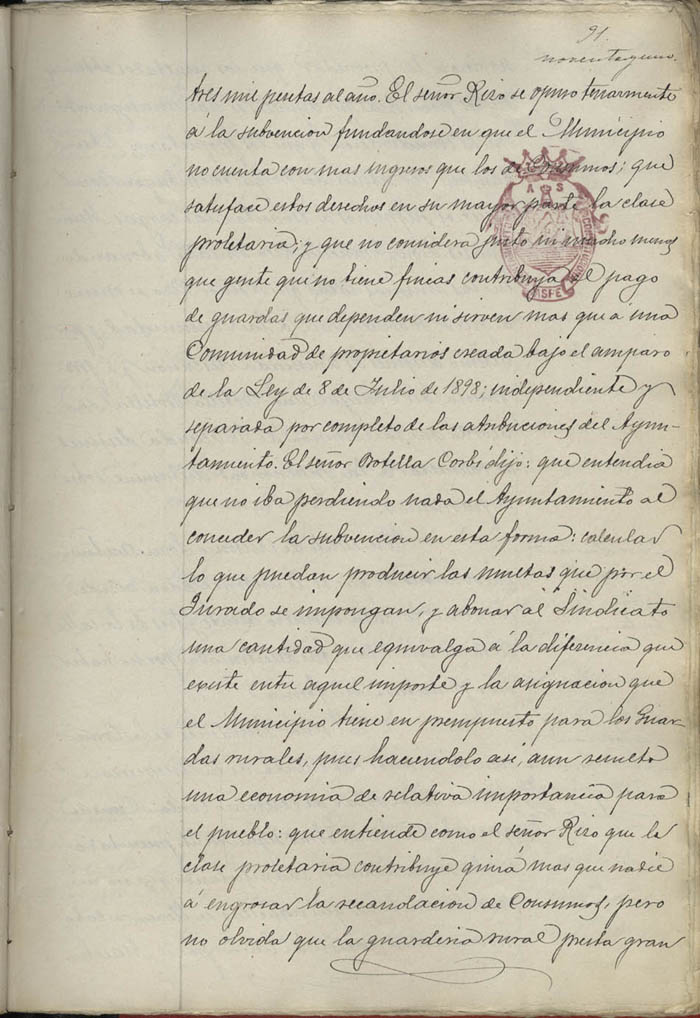 91.
noventayuno.
tres mil pesetas al año. El señor Rizo se opuso tenazmente
á la subvencion fundandose en que el Municipio
no cuenta con mas ingresos que los de Consumos; que
satisface estos derechos en su mayor parte la clase
proletaria; y que no considera justo ni mucho menos
que gente que no tiene fincas contribuya al pago
de guardas que dependen ni sirven mas que a una
Comunidad de propietarios creada bajo el amparo
de la Ley de 8 de Julio de 1898; independiente y
separada por completo de las atribuciones del Ayun-
tamiento. El señor Botella Corbí dijo: que entendia
que no iba perdiendo nada el Ayuntamiento al
conceder la subvencion en esta forma: calcular
lo que puedan producir las multas que por el
Jurado se impongan, y abonar al Sindicato
una cantidad que equivalga á la diferencia que
existe entre aquel importe y la asignacion que
el Municipio tiene en presupuesto para los Guar-
das rurales, pues haciendolo así, aun resulta
una economia de relativa importancia para
el pueblo: que entiende como el señor Rizo que la
clase proletaria contribuye quizá mas que nadie
á engrosar la recaudacion de Consumos, pero
no olvida que la guarderia rural presta gran
A S
ASPE